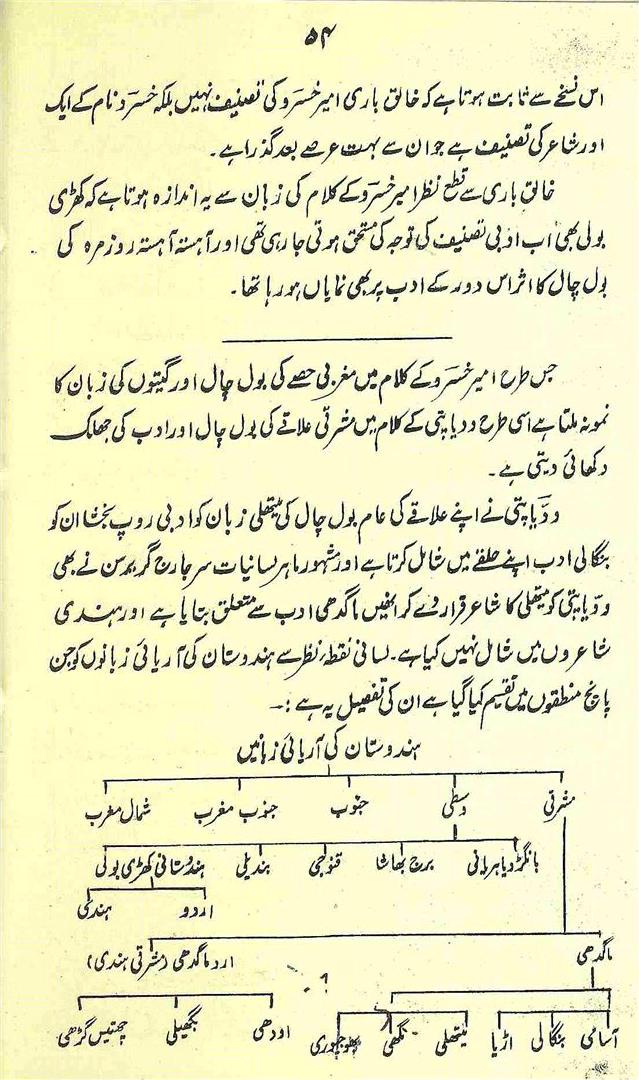 ۵۴
اس نسخے سے ثابت ہوتا ہے کہ خالق باری امیر خسرو کی تصنیف نہیں بلکہ خسرو نام کے ایک
اور شاعر کی تصنیف ہے جو ان سے بہت عرصے بعد گذرا ہے۔
خالق باری سے قطع نظر امیر خسرو کے کلام کی زبان سے یہ اندازہ ہوتا ہے کہ کھڑی
بولی بھی اب ادبی تصنیف کی توجہ کی مستحق ہوتی جا رہی تھی اور آہستہ آہستہ روزمرہ کی
بول چال کا اثر اس دور کے ادب پر بھی نمایاں ہو رہا تھا۔
جس طرح امیر خسرو کے کلام میں مغربی حصے کی بول چال اور گیتوں کی زبان کا
نمونہ ملتا ہے اسی طرح ودیاپتی کے کلام میں مشرقی علاقے کی بول چال اور ادب کی جھلک
دکھائی دیتی ہے۔
ودیاپتی نے اپنے علاقے کی عام بول چال کی میتھلی زبان کو ادبی روپ بخشا ان کو
بنگالی ادب اپنے حلقے میں شامل کرتا ہے اور مشہور ماہر لسانیات سر جارج گریرسن نے بھی
ودیاپتی کو میتھلی کا شاعر قرار دے کر انھیں ماگدھی ادب سے متعلق بتایا ہے اور ہندی
شاعروں میں شامل نہیں کیا ہے۔ لسانی نقطۂ نظر سے ہندوستان کی آریائی زبانوں کو جن
پانچ منطقوں میں تقسیم کیا گیا ہے ان کی تفصیل یہ ہے :۔
ہندوستان کی آریائی زبانیں
مشرقی وسطی جنوب جنوب مغرب شمال مغرب
بانگڑو یا ہریانی برج بھاشا قنوجی بندیلی ہندوستانی کھڑی بولی
اردو ہندی
ماگدھی اردماگدھی (مشرقی ہندی)
آسامی بنگالی اڑیا میتھلی مگھی بھوجپوری اودھی بگھیلی چھتیس گڑھی